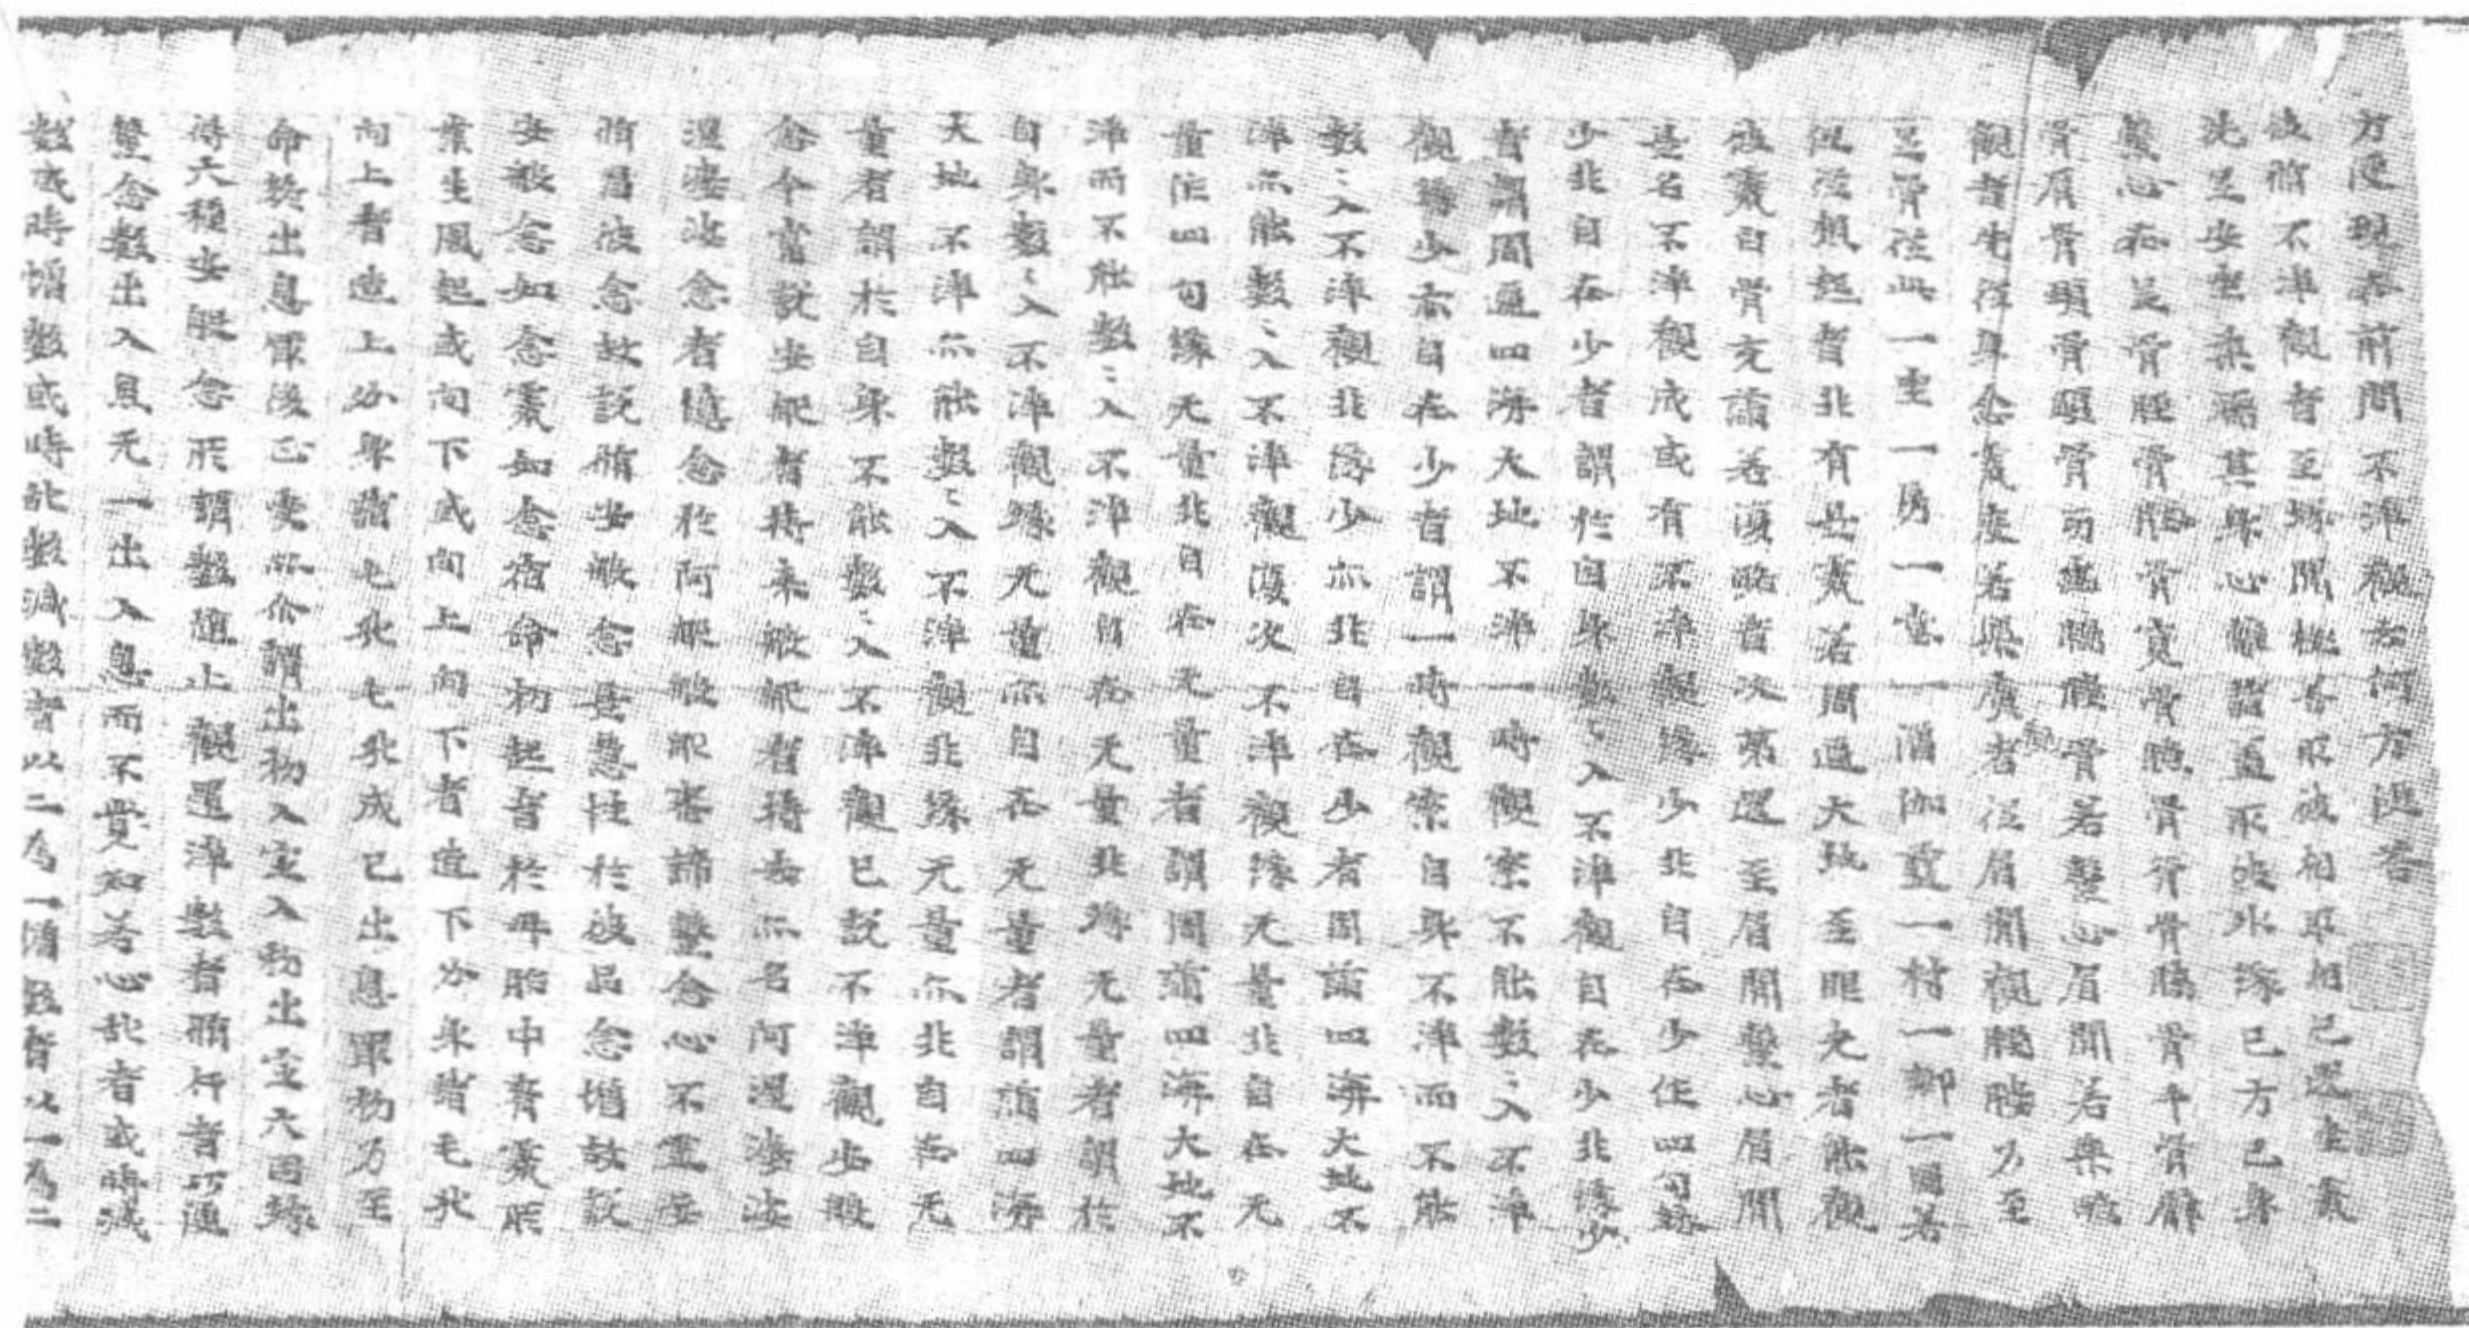 方便現在前問不淨觀云何方便答
彼脩不淨觀者至塚間極善取彼相取相已還坐處
洗足安坐柔濡其身心離諸蓋取彼外緣已方己身
繫心在足骨脛骨骨寬骨腰骨脊骨脇骨手骨臂
骨肩骨頸骨頤骨牙齒髑髏骨若繫心眉間若樂略
觀者先從身念處度若樂廣者從眉間觀髑髏乃至
足骨從此一坐一房一堂一僧伽藍一村一鄉一國若
想起者非有是處若周遍大地至眼光者能觀
彼處白骨充滿若復略者次第還至眉間繫心眉間
是名不淨觀成或有不淨觀緣少非自在少作四句緣
少非自在少者謂於自身數〻入不淨觀自在少非緣少
者謂周遍四海大地不淨一時觀察不能數〻入不淨
觀緣少亦自在少者謂一時觀察自身不淨而不能
數〻入不淨觀非緣少亦非自在少者周滿四海大地不
淨亦能數〻入不淨觀復次不淨觀緣无量非自在无
量作四句緣无量非自在无量者謂周滿四海大地不
淨而不能數〻入不淨觀自在无量非緣无量者謂於
自身數〻入不淨觀緣无量亦自在无量者謂滿四海
大地不淨亦能數〻入不淨觀非緣无量亦非自在无
量者謂於自身不能數〻入不淨觀已說不淨觀安般
念今當說安般者持來般那者持去亦名阿濕婆娑
濕婆娑念者憶念於阿那般那審諦繫念心不定妄
脩習彼念故說脩安般念是慧性於彼品念增故說
安般念如念處如念宿命初起者於母胎中臍處所
業生風起或向下或向上向下者造下分身諸毛孔
向上者造上分身諸毛孔毛孔成已出息罪初乃至
命終出息罪後正受亦尒謂出初入定入初出定六因緣
得六種安般念所謂數隨止觀還淨數者脩行者巧便
繫念數出入息无一出入息而不覺知若心乱者或時減
數或時增數或時乱數減數者以二為一增數者以一為二